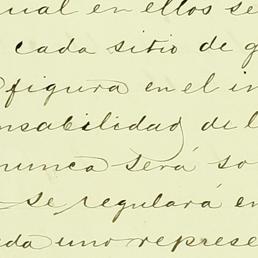 ual en ellos se
cada sitio de g
figura en el in
nsabilidad de l
nunca será so
se regulará en
da uno represe